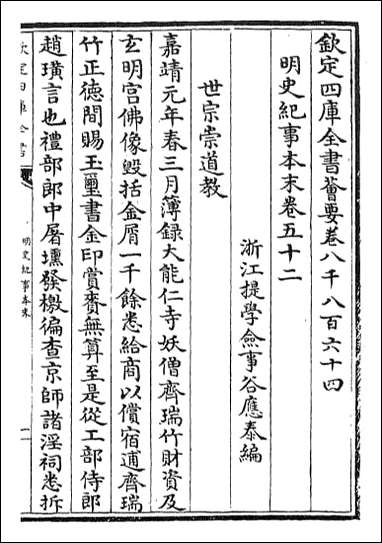 欽定四庫全書薈要卷八千八百六十四
明史紀事本末卷五十二
浙江提學僉事谷應泰編
世宗崇道教
嘉靖元年春三月簿録大能仁寺妖僧齊瑞竹財資及
玄明宫佛像毀括金屑一千餘悉給商以償宿逋齊瑞
竹正德間賜玉璽書金印賞賚無算至是從工部侍郎
趙璜言也禮部郎中屠壎發檄徧查京師諸淫祠悉拆
欽定四庫全書
明史紀事本末
一